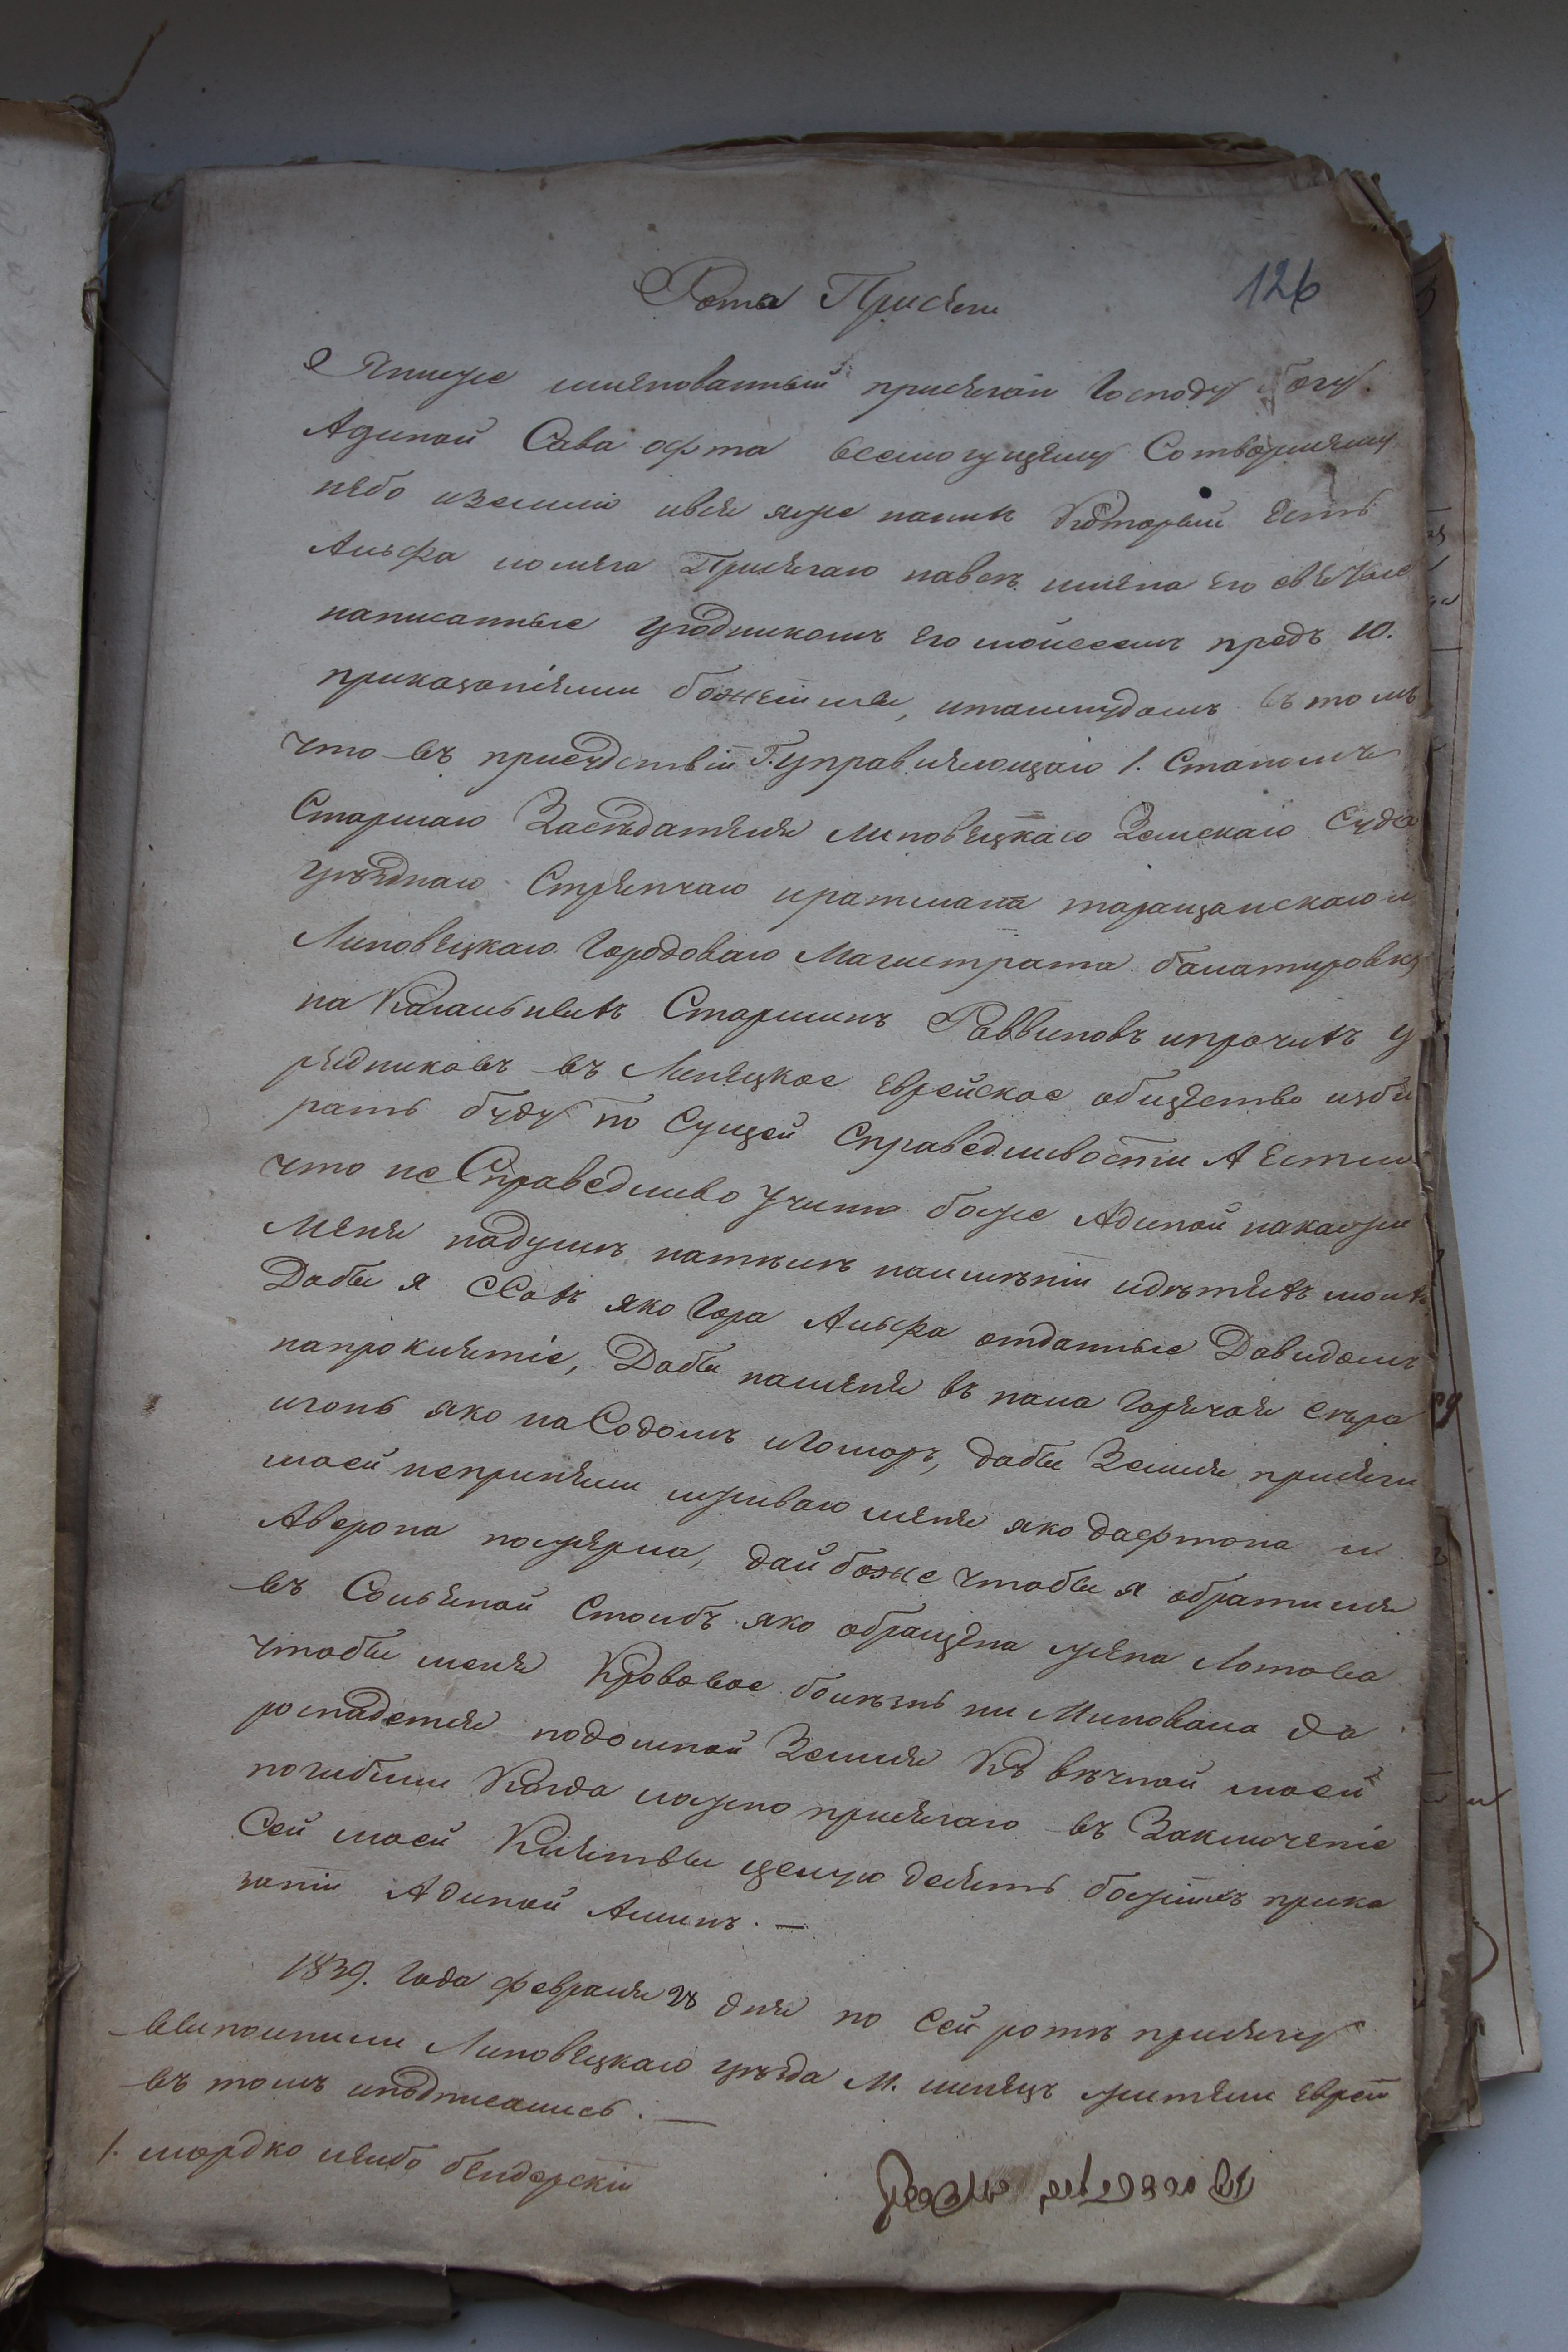 Рота Присяги
126
Я нижеименованный присягаю Господу Богу
Адинай Сава офта всемогущему Сотворшему
небо иземлю ився яже наних Который Есть
Альфа иомега Присягаю навсех имена его святые
написанные угодникомъ его моисеемъ предъ 10.
приказаніями божіими, италмудомъ въ томъ
что въ присудствіи Г. управляющаго 1. Станомъ
Старшаго Заседателя липовецкаго Земскаго Суда
уезднаго Стряпчаго иратмана таращанскаго и
Липовецкаго Городоваго Магистрата балатировку
на Кагальныхъ Старшинъ Раввиновъ ипрочихъ у
рядниковъ въ Линецкое Еврейское общество изби
рать буду по Сущей Справедливости А Если
что не Справедливо Учиню боже Адинай накажи
Меня надушъ нателъ наименіи идетяхъ моихъ
Дабы я яко Гора Альфа отданные Давидомъ
напроклятіе, Дабы наменя въ пала Горячая сера
иогонь яко на Содомъ иГоморъ, дабы Земля присяги
моей неприняли иживаго меня яко дафтона и
Аверона пожерла, дай боже чтобы я обратился
въ Сольяной Столбъ яко обращена жена Лотова
чтобы меня Кровавое болезнь ни Миновала да
роспадется подомной Земля Къ вечной моей
погибили Когда ложно присягаю въ Заключеніе
Сей моей Клятвы целую десять божіихъ прика
заніи Адинай Аминъ. —
1839. Года февраля 28 дня по Сей роте присягу
выполнили Липовецкаго уезда М. линецъ жители Евреи
въ томъ иподписались. —
1. мордко лейбо бендерскій